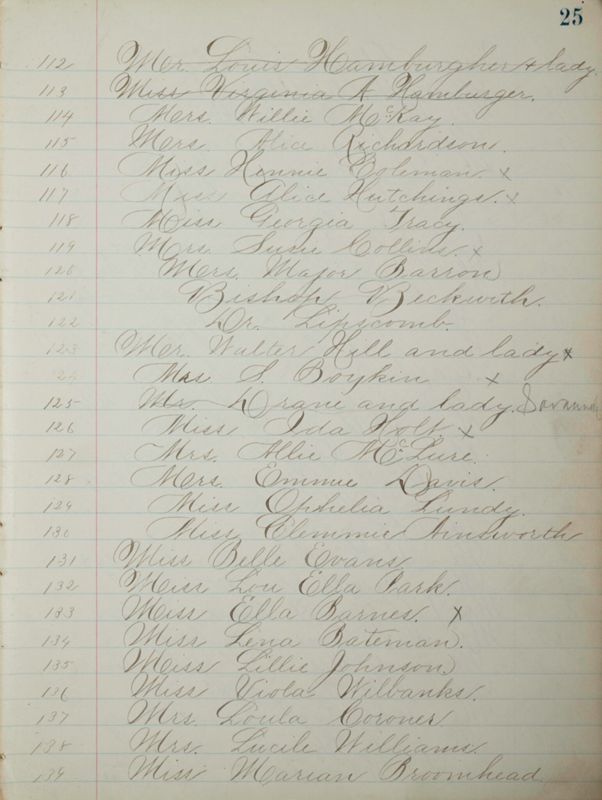 25
112 Mr. Louis Hamburgher & lady.
113 Miss Virginia A Hamburger.
114 Mrs. Willie McKay.
115 Mrs. Alice Richardson.
116 Miss Hennie Coleman. x
117 Miss Alice Hutchings. x
118 Miss Georgia Tracy.
119 Mrs. Susie Collins. x
120 Mrs. Major Barron
121 Bishop Beckwith.
122 Dr. Lipscomb.
123 Mr. Walter Hill and lady x
Mrs S. Boykin x
125 Mr. Drane and lady. Savannah
126 Miss Ida Holt x
127 Mrs. Allie McLure.
128 Mrs. Emmie Davis.
129 Miss Ophelia Lundy.
130 Miss Clemmie Ainsworth
131 Miss Belle Evans
132 Miss Lou Ella Park.
133 Miss Ella Barnes. x
134 Miss Lena Bateman.
135 Miss Lillie Johnson.
136 Miss Viola Wilbanks.
137 Mrs. Loula Coroner
138 Mrs. Lucile Williams.
139 Miss Marian Broomhead